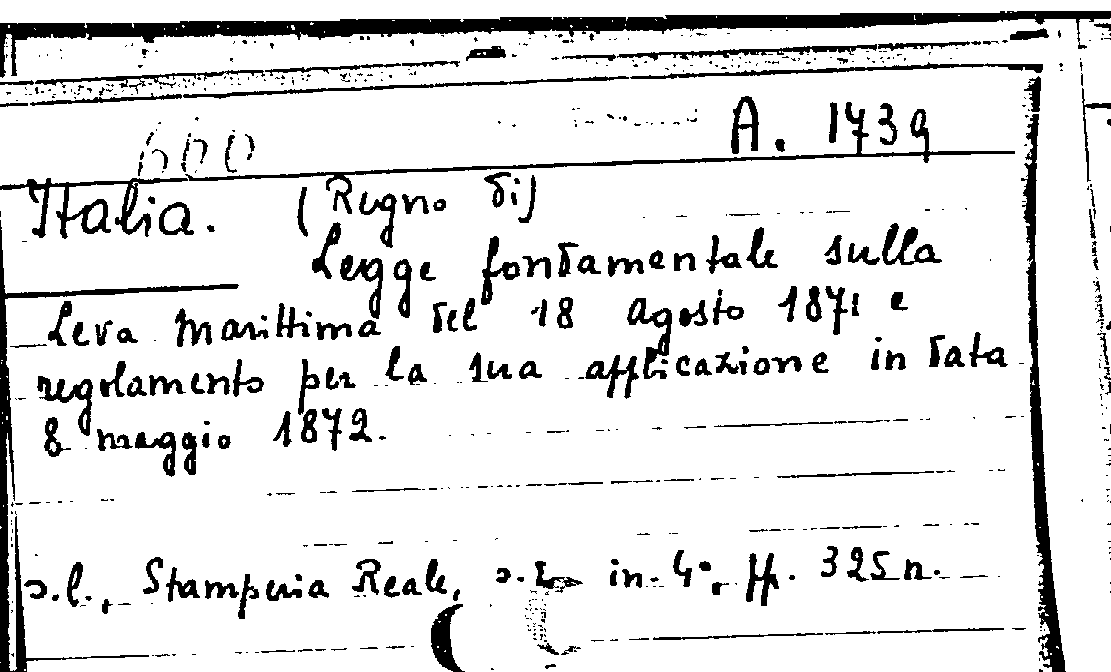 600
A. 1739
Italia. (Regno di)
Legge fondamentale sulla
Leva Marittima del 18 agosto 1871 e
regolamento per la sua applicazione in data
8 maggio 1872.
s.l., Stamperia Reale, s. in-4°, pp. 325 n.